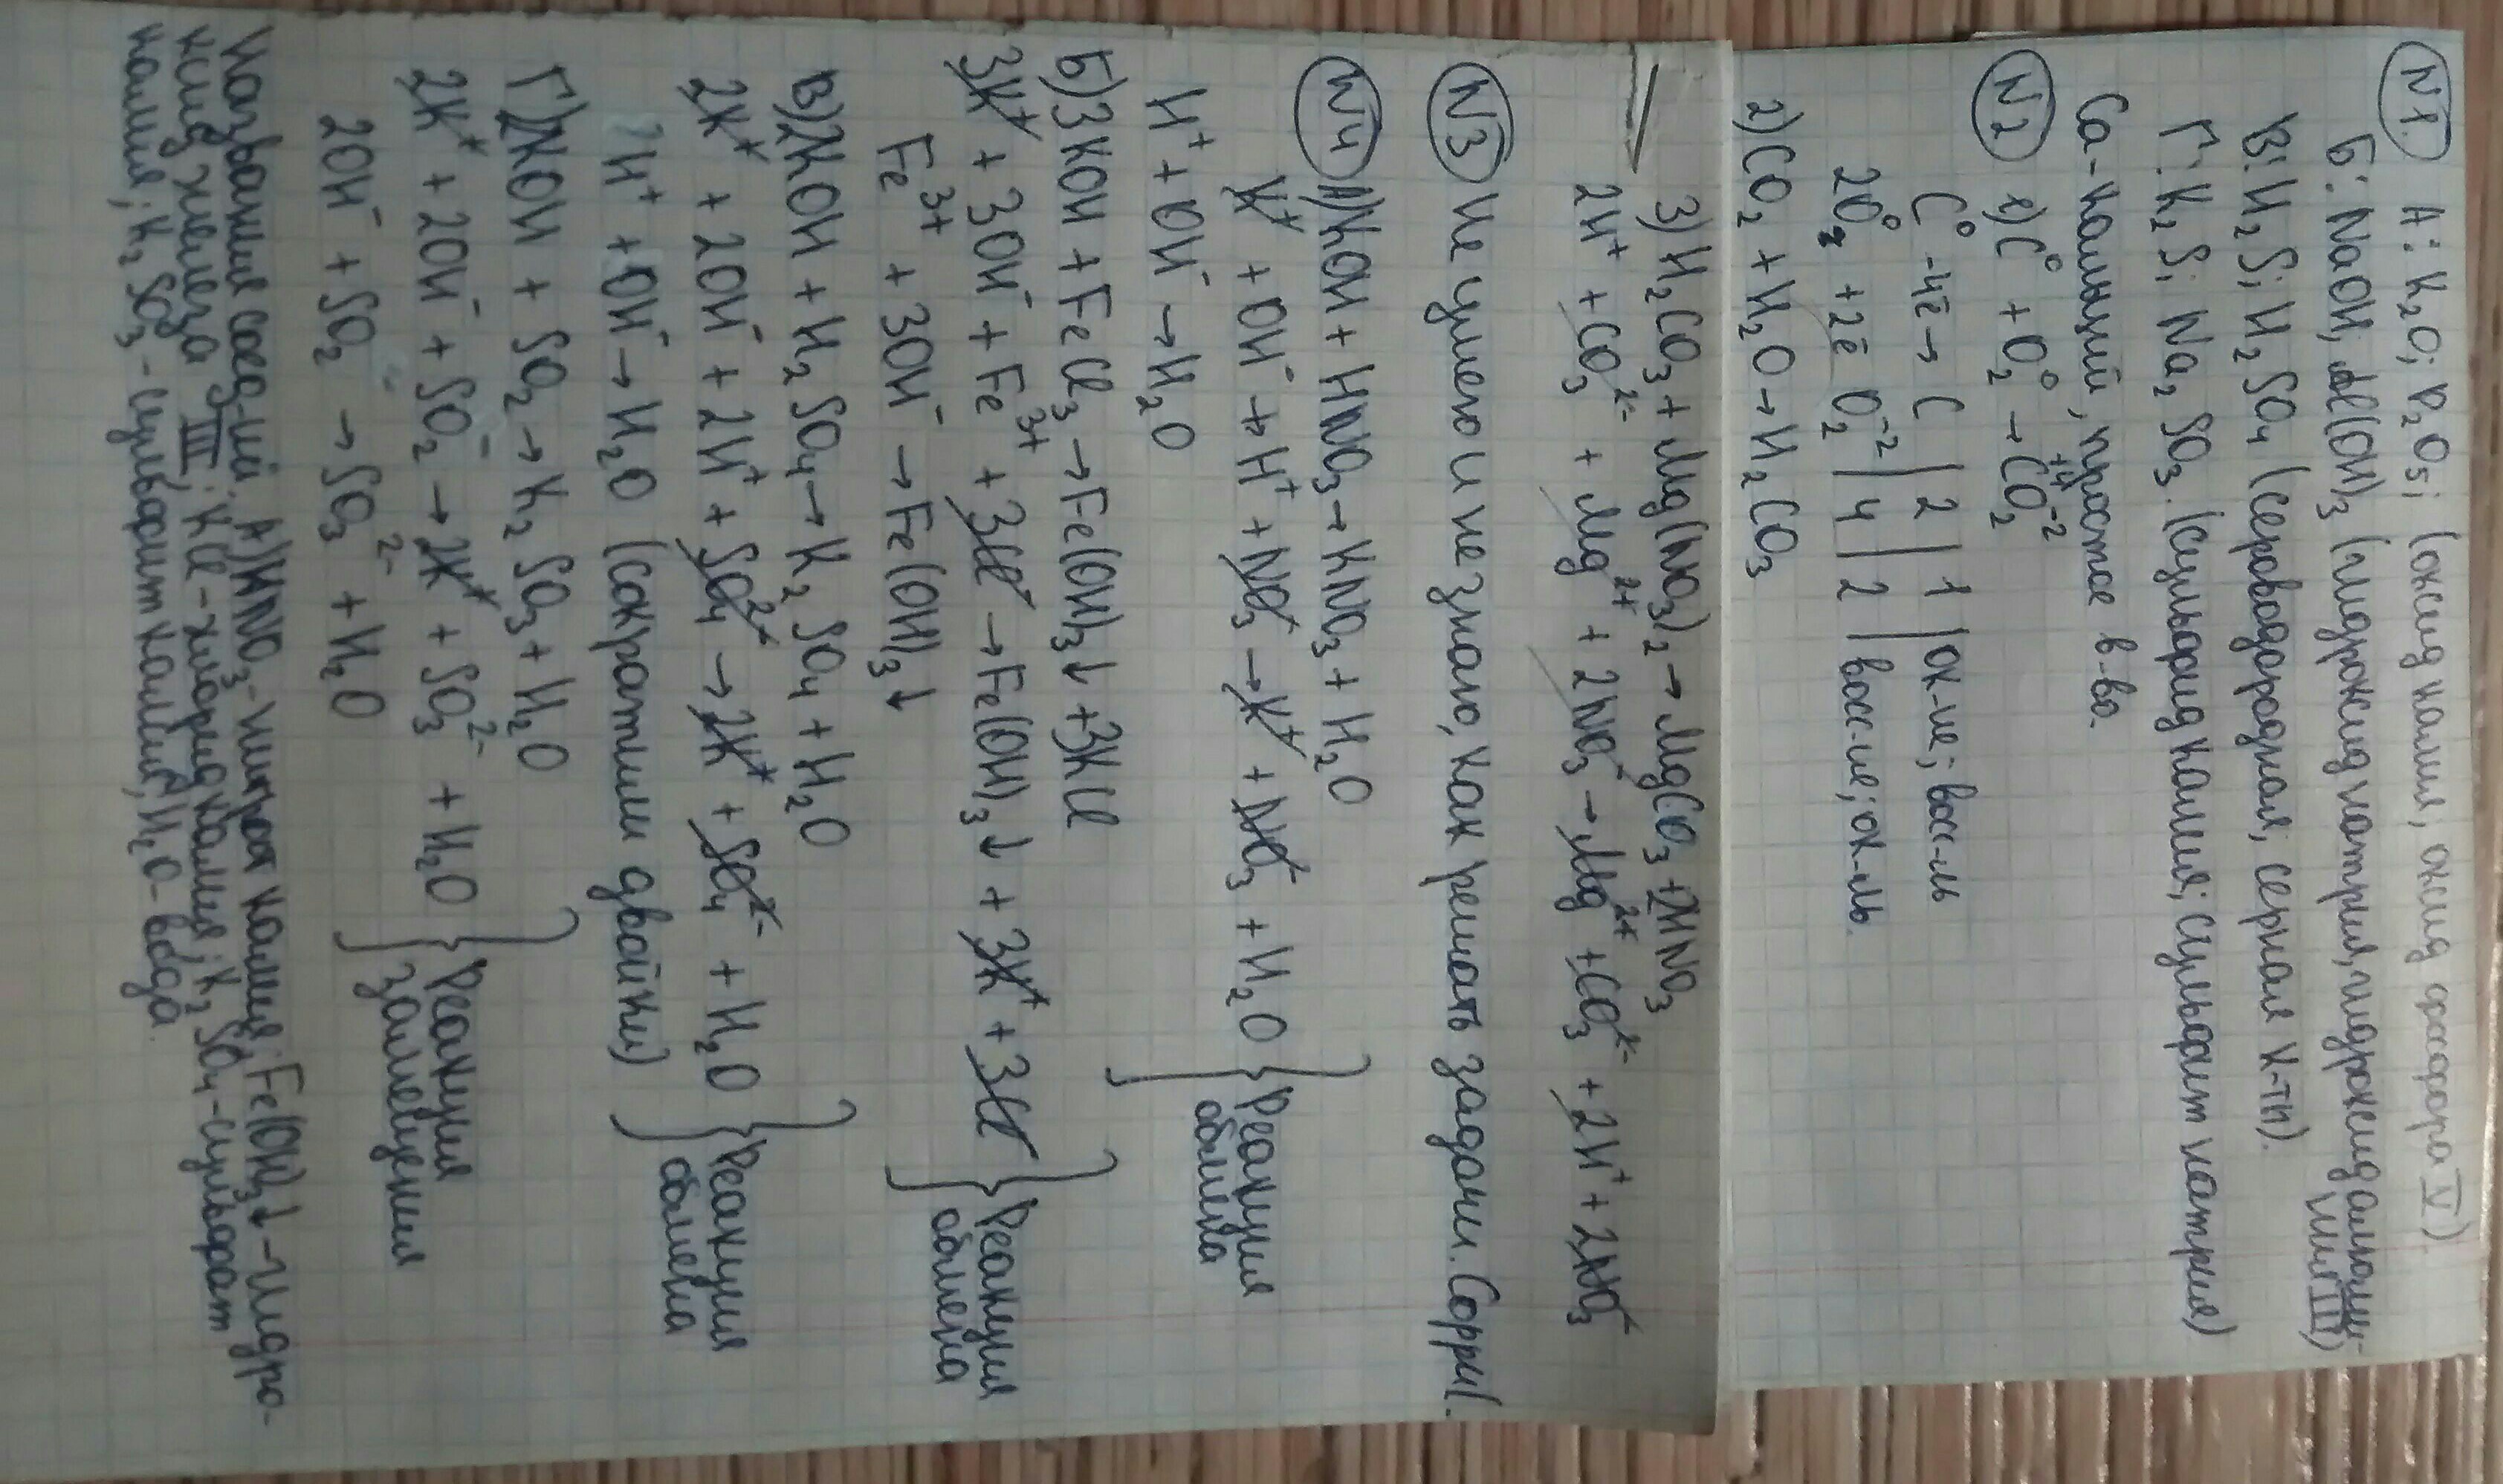 N1. А: K₂O; P₂O₅; (оксид калия, оксид фосфора V).
Б: NaOH; Al(OH)₃ (гидроксид натрия, гидроксид алюми-
ния III)
В: H₂S; H₂SO₄ (сероводородная, серная к-ты).
Г: K₂S; Na₂SO₃. (сульфид калия; сульфит натрия)
Ca - кальций, простое в-во.
N2 1) C⁰ + O₂⁰ → C⁺⁴O₂⁻²
C⁰ -4ē → C | 2 | 1 | ок-ие; вос-ль
2O₂⁰ +2ē O₂⁻² | 4 | 2 | восс-ие; ок-ль.
2) CO₂ + H₂O → H₂CO₃
3) H₂CO₃ + Mg(NO₃)₂ → MgCO₃ + 2HNO₃
2H⁺ + CO₃²⁻ + Mg²⁺ + 2NO₃⁻ → Mg²⁺ + CO₃²⁻ + 2H⁺ + 2NO₃⁻
N3 Не умею и не знаю, как решать задачи. Сорри(.
N4 А) KOH + HNO₃ → KNO₃ + H₂O
K⁺ + OH⁻ + H⁺ + NO₃⁻ → K⁺ + NO₃⁻ + H₂O } Реакция
обмена
H⁺ + OH⁻ → H₂O
Б) 3KOH + FeCl₃ → Fe(OH)₃↓ + 3KCl
3K⁺ + 3OH⁻ + Fe³⁺ + 3Cl⁻ → Fe(OH)₃↓ + 3K⁺ + 3Cl⁻ } Реакция
обмена
Fe³⁺ + 3OH⁻ → Fe(OH)₃↓
В) 2KOH + H₂SO₄ → K₂SO₄ + H₂O
2K⁺ + 2OH⁻ + 2H⁺ + SO₄²⁻ → 2K⁺ + SO₄²⁻ + H₂O } Реакция
обмена
H⁺ + OH⁻ → H₂O (сократили двойки)
Г) 2KOH + SO₂ → K₂SO₃ + H₂O
2K⁺ + 2OH⁻ + SO₂ → 2K⁺ + SO₃²⁻ + H₂O } Реакция
замещения
2OH⁻ + SO₂ → SO₃²⁻ + H₂O
Название соед-ий. А) KNO₃ - нитрат калия; Fe(OH)₃↓ - гидро-
ксид железа III; KCl - хлорид калия; K₂SO₄ - сульфат
калия; K₂SO₃ - сульфит калия; H₂O - вода.